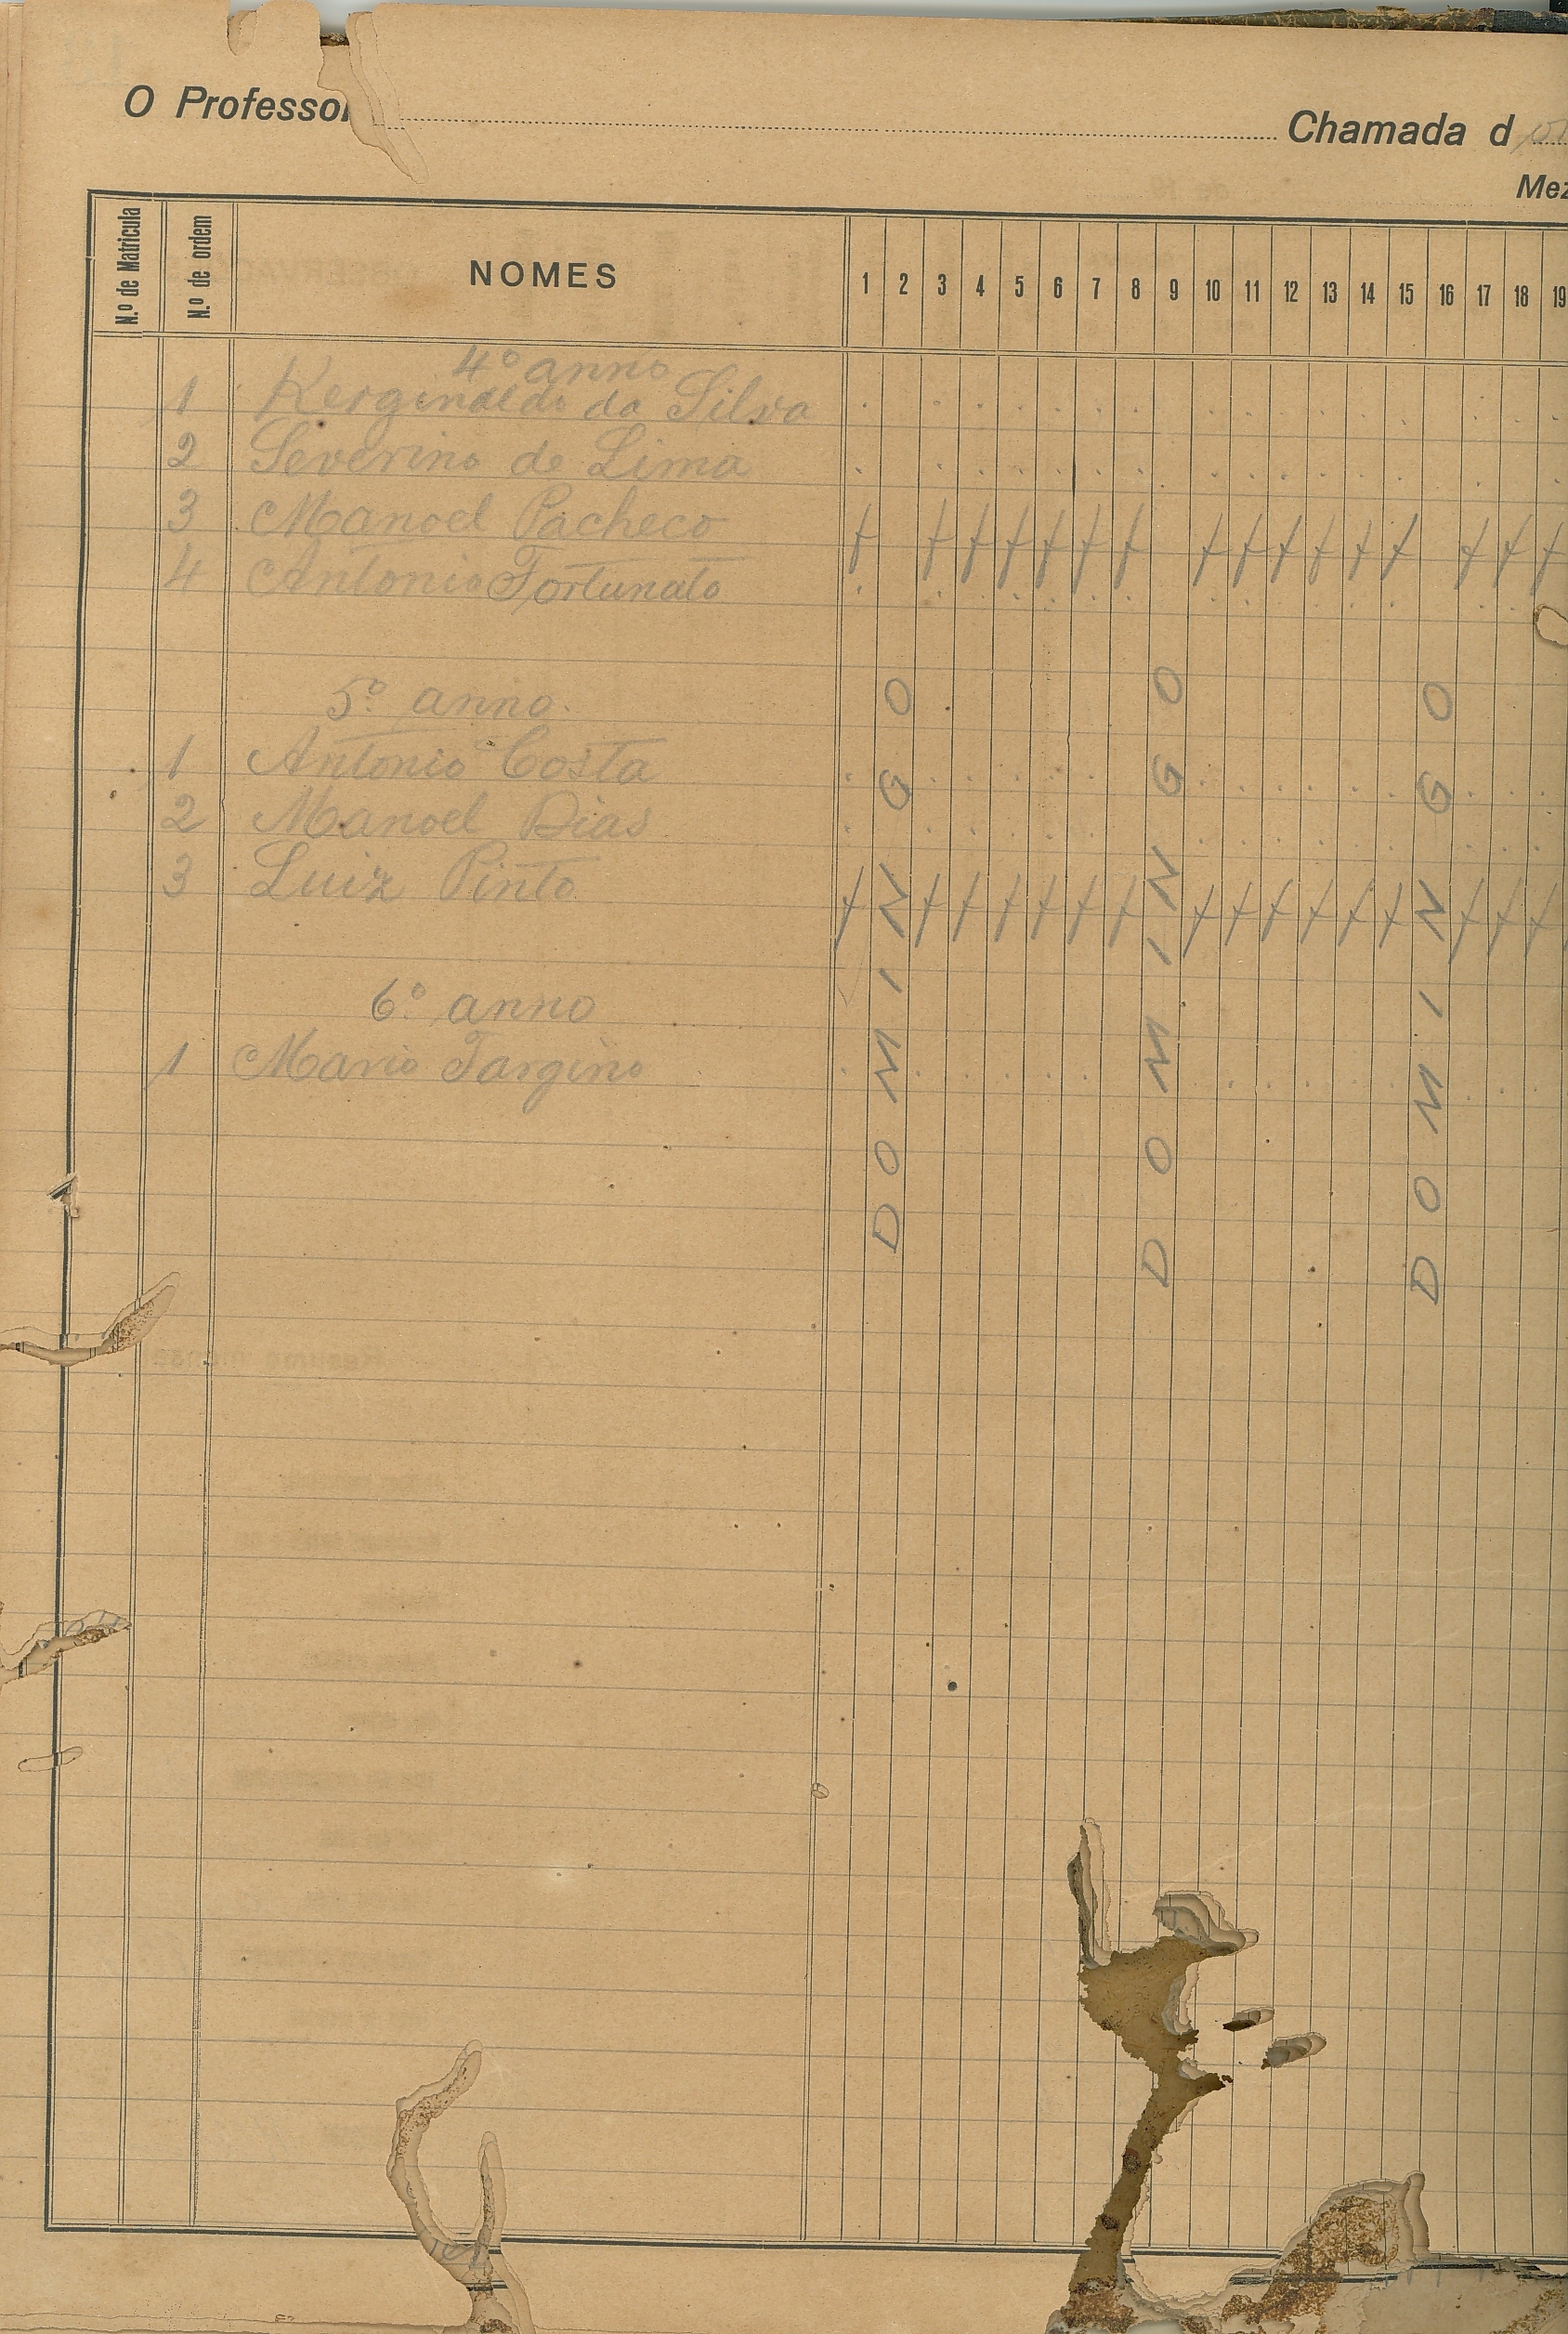 O Professor Chamada d
Mez
N.º de Matricula N.º de ordem NOMES 1 2 3 4 5 6 7 8 9 10 11 12 13 14 15 16 17 18 19
4º anno
1 Kerginaldo da Silva . . . . . . . . . . . . . . . . .
2 Severino de Lima . . . . . . . . . . . . . . . . .
3 Manoel Pacheco f f f f f f f f f f f f f f f f
4 Antonio Fortunato . . . . . . . . . . . . . . . . .
5º anno.
1 Antonio Costa . . . . . . . . . . . . . . . . .
2 Manoel Dias . . . . . . . . . . . . . . . . .
3 Luiz Pinto f f f f f f f f f f f f f f f f
6º anno
1 Mario Targino . . . . . . . . . . . . . . . . .
DOMINGO
DOMINGO
DOMINGO